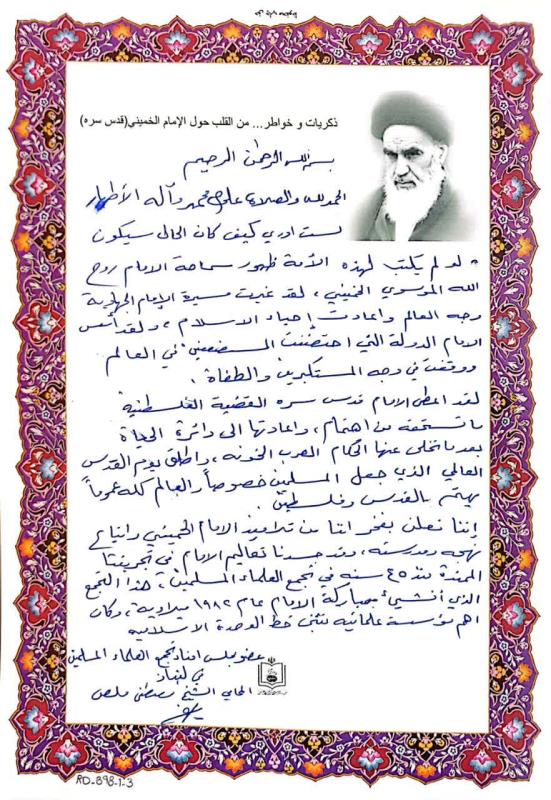 ذكريات و خواطر... من القلب حول الإمام الخميني(قدس سره)
بسم الله الرحمن الرحيم
الحمد لله والصلاة على محمد وآله الأطهار
لست ادري كيف كان الحال سيكون
لو لم يكتب لهذه الأمة ظهور سماحة الامام روح
الله الموسوي الخميني، لقد غيرت مسيرة الإمام الجهادية
وجه العالم واعادت إحياء الاسلام، ولقد أسس
الامام الدولة التي احتضنت المستضعفين في العالم
ووقفت في وجه المستكبرين والطغاة.
لقد اعطى الامام قدس سره القضية الفلسطينية
ما تستحقه من اهتمام، واعادها الى دائرة الحياة
بعد ما تخلى عنها الحكام العرب الخونه، واطلق يوم القدس
العالمي الذي جعل المسلمين خصوصاً والعالم كله عموماً
يهتم بالقدس وفلسطين.
إننا نعلن بفخر اننا من تلاميذ الامام الخميني واتباع
نهجه ومدرسته، وقد جسدنا تعاليم الامام في تجربتنا
الممتدة منذ ٤٥ سنه في تجمع العلماء المسلمين، هذا التجمع
الذي أنشئ بمباركة الامام عام ١٩٨٢ ميلادية، وكان
اهم مؤسسة علمائية تتبنى خط الوحدة الاسلاميه
عضو مجلس امناء تجمع العلماء المسلمين
في لبنان
الشيخ مصطفى ملص
RD-898-1-3